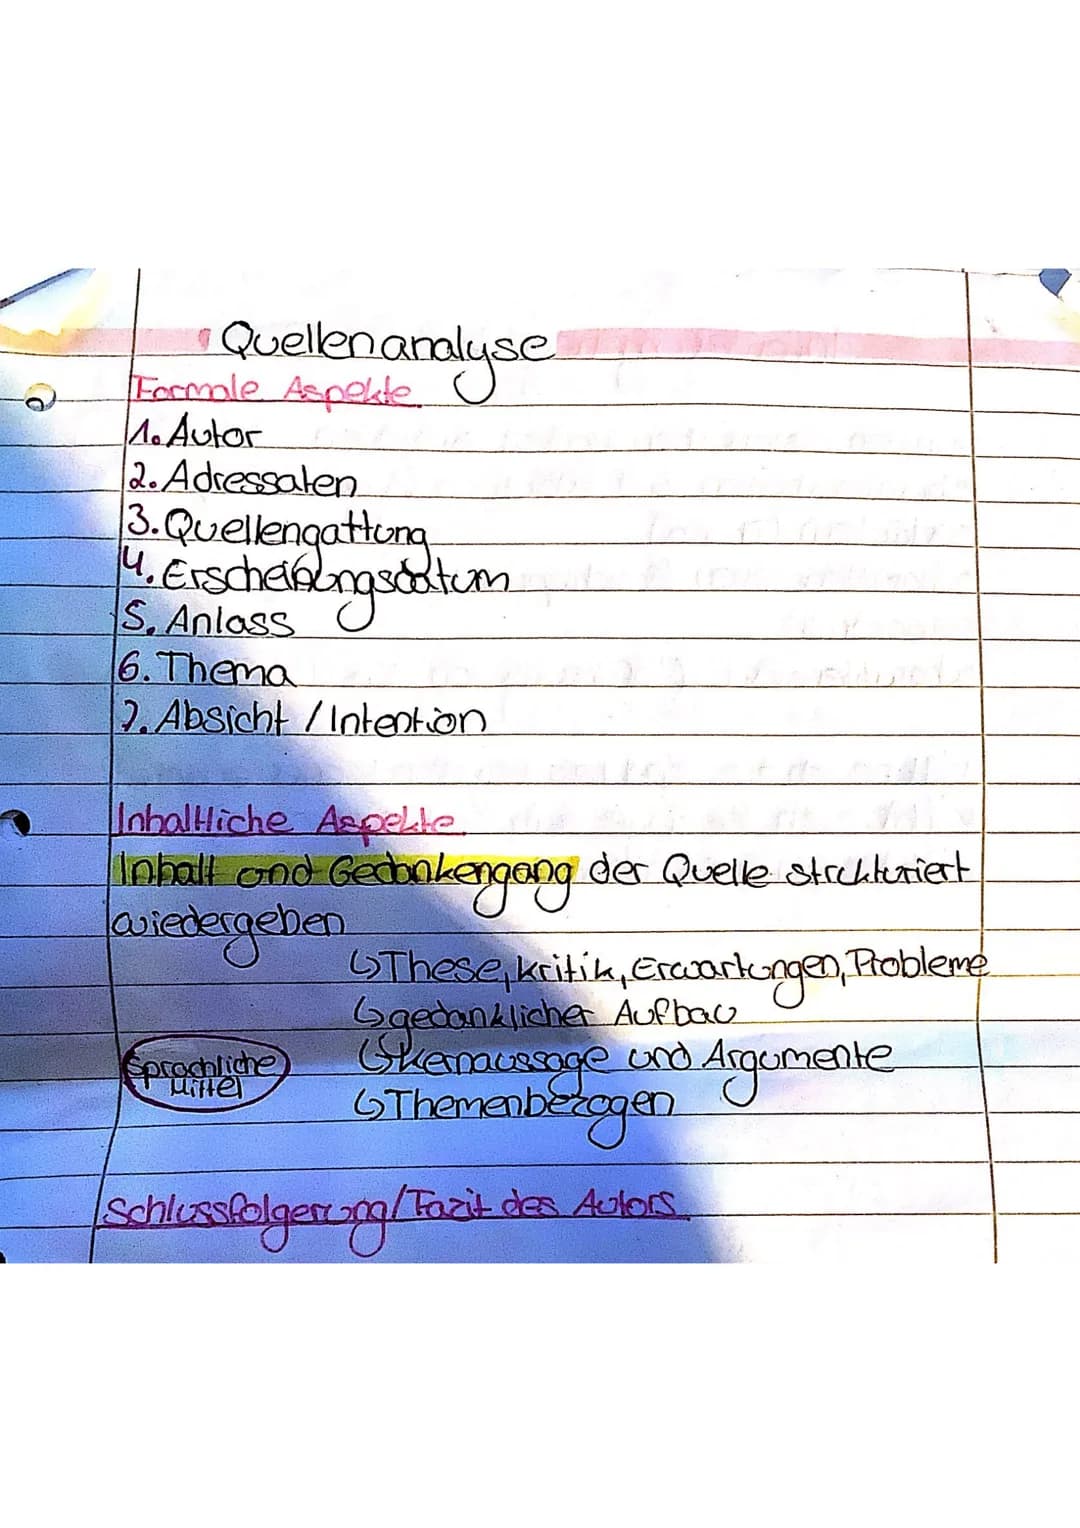 Quellenanalyse
Formale Aspekte
1. Autor
2. Adressaten
3. Quellengattung
4. Erscheinungsdatum
5. Anlass
6. Thema
7. Absicht / Intention
Inhaltliche Aspekte
Inhalt und Gedankengang der Quelle strukturiert
wiedergeben
↳ These, Kritik, Erwartungen, Probleme
↳ gedanklicher Aufbau
↳ Kernaussage und Argumente
↳ Themenbezogen
Sprachliche
Mittel
Schlussfolgerung/Fazit des Autors